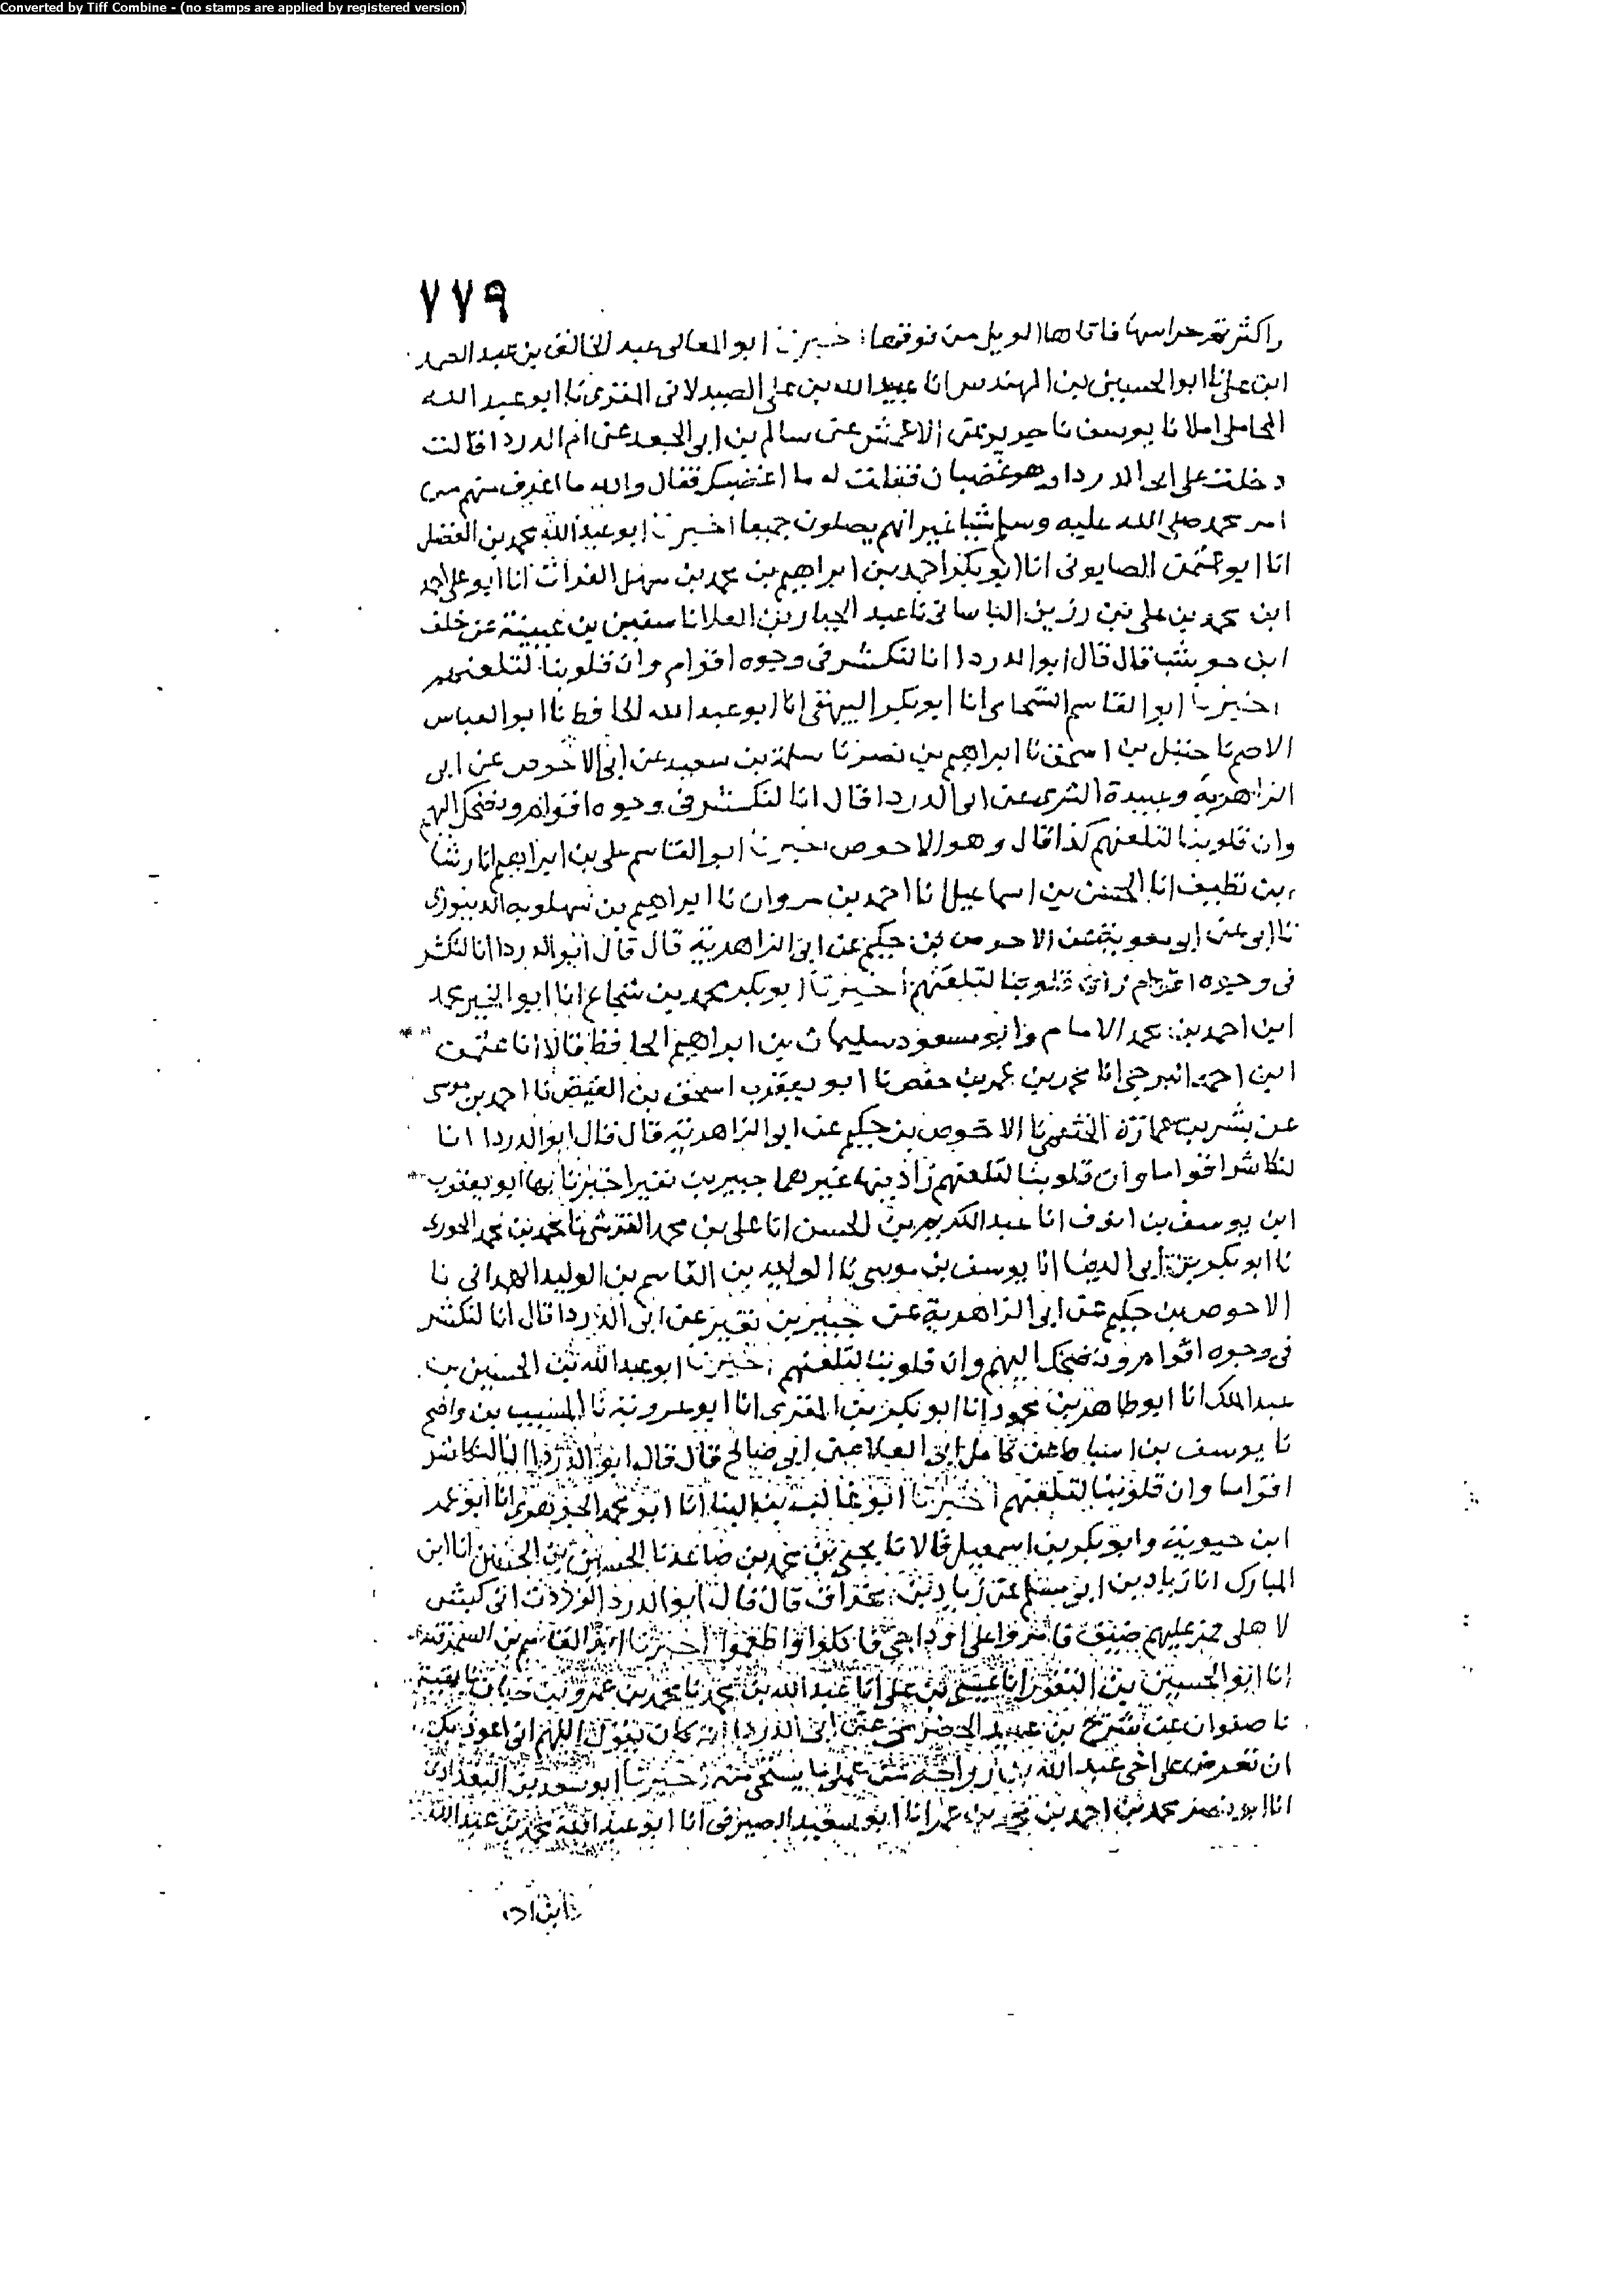 Converted by Tiff Combine - (no stamps are applied by registered version)
٧٧٩
واكثرتم حراسها فاتاها الويل من فوقها اخبرنا ابو المعالى عبد الخالق بن عبد الصمد
ابن على انا ابو الحسين بن المهندس انا عبيد الله بن على الصيدلانى المقرى نا ابو عبد الله
المحاملى املا نا يوسف نا جرير عن الاعمش عن سالم بن ابى الجعد عن ام الدردا قالت
دخلت على ابى الدردا وهو غضبان فقلت له ما اغضبك فقال والله ما اعرف منهم من
امر محمد صلى الله عليه وسلم شيا غير انهم يصلون جميعا اخبرنا ابو عبد الله محمد بن الفضل
انا ابو عثمن الصابونى انا ابو بكر احمد بن ابراهيم بن محمد بن سهل القراب انا ابو على احمد
ابن محمد بن على بن رزين الباسانى نا عبد الجبار بن العلا نا سفين بن عيينة عن خلف
ابن حوشب قال قال ابو الدردا انا لنكشر فى وجوه اقوام وان قلوبنا لتلعنهم
اخبرنا ابو القاسم الشحامى انا ابو بكر البيهقى انا ابو عبد الله الحافظ نا ابو العباس
الاصم نا حنبل بن اسحق نا ابراهيم بن نصر نا سلمة بن سعيد عن ابى الاحوص عن ابى
الزاهرية وعبيدة السرى عن ابى الدردا قال انا لنكشر فى وجوه اقوام ونضحك اليهم
وان قلوبنا لتلعنهم كذا قال وهو الاحوص اخبرنا ابو القاسم على بن ابراهيم انا رشا
بن نظيف انا الحسن بن اسماعيل نا احمد بن مروان نا ابراهيم بن سهلويه الدينورى
نا ابى عن ابى معوية عن الاحوص بن حكيم عن ابى الزاهرية قال قال ابو الدردا انا لنكشر
فى وجوه اقوام وان قلوبنا لتلعنهم اخبرنا ابو بكر محمد بن شجاع انا ابو الخير محمد
ابن احمد بن محمد الامام وابو مسعود سليمان بن ابراهيم الحافظ قالا انا عثمن
ابن احمد البرجى انا محمد بن عمر بن حفص نا ابو يعقوب اسحق بن الفيض نا احمد بن موسى
عن بشر بن عمارة الخثعمى نا الاحوص بن حكيم عن ابى الزاهرية قال قال ابو الدردا انا
لنكاشر اقواما وان قلوبنا لتلعنهم زاد بينهما غيرهما جبير بن نفير اخبرنا بها ابو يعقوب
ابن يوسف بن ايوب انا عبد الكريم بن الحسن انا على بن محمد القرشى نا محمد بن محمد الجورى
نا ابو بكر بن ابى الدنيا انا يوسف بن موسى نا الوليد بن القاسم بن الوليد الهمدانى نا
الاحوص بن حكيم عن ابى الزاهرية عن جبير بن نفير عن ابى الدردا قال انا لنكشر
فى وجوه اقوام ونضحك اليهم وان قلوبنا لتلعنهم اخبرنا ابو عبد الله بن الحسين بن
عبد الملك انا ابو طاهر بن محمود انا ابو بكر بن المقرى انا ابو عروبة نا المسيب بن واضح
نا يوسف بن اسباط عن كامل ابى العلا عن ابى صالح قال قال ابو الدردا انا لنكاشر
اقواما وان قلوبنا لتلعنهم اخبرنا ابو غالب بن البنا انا ابو محمد الجوهرى انا ابو عمر
ابن حيوية وابو بكر بن اسمعيل قالا نا يحيى بن محمد بن صاعد نا الحسين بن الحسن انا ابن
المبارك انا زياد بن ابى مسلم عن زياد بن مخراق قال قال ابو الدردا لوددت انى كبش
لاهلى فمر عليهم ضيف فامروا على اوداجى فاكلوا واطعموا اخبرنا ابو القاسم بن السمرقندى
انا ابو الحسين بن النقور انا عيسى بن على انا عبد الله بن محمد نا محمد بن عمرو بن حيان نا بقية
نا صفوان عن شريح بن عبيد الحضرمى عن ابى الدردا انه كان يقول اللهم انى اعوذ بك
ان تعرض على اخى عبد الله بن رواحة من عملى ما يستحى منه اخبرنا ابو سعد بن البغدادى
انا ابو نصر محمد بن احمد بن محمد بن عمر انا ابو سعيد الصيرفى انا ابو عبد الله محمد بن عبد الله